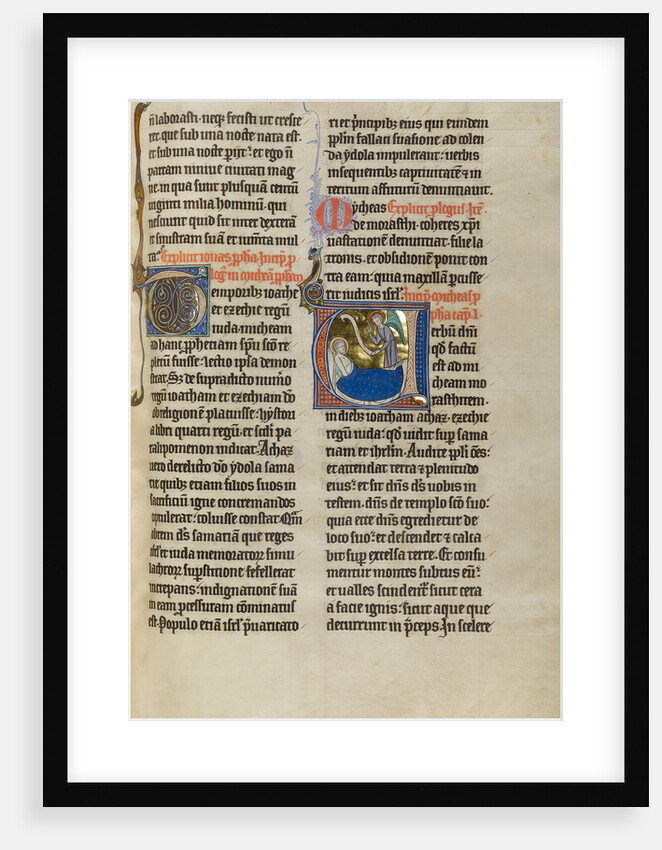 n̄ laborasti· neqꝫ fecisti ut cresce
ret· que sub una nocte nata est·
et sub una nocte perijt· et ego n̄
parcam niniue ciuitati mag
ne· in qua sunt plusquā centū
uiginti milia hominū· qui
nesciunt quid sit inter dexterā
et sinistram suā et iumēta mul
ta· Explicit ionas ꝓpha· Incip̄ p
loḡ in micheā ꝓphām
Temporibꝫ ioathe
et ezechie regū
iuda· micheam
ad hanc ꝓphetiam sp̄u sc̄o re
pletū fuisse· lectio ipsa demon
strat· Sꝫ de supradicto nūo
regū ioacham et ezechiam do
ob religionē placuisse· hystori
a libri quarti regū· et sc̄di pa
ralipomenon indicat· Achaz
uero derelicto do ydola sama
rie quibꝫ etiam filios suos in
sacrificiū igne concremandos
optulerat· coluisse constat· Qm̄
obrem ds̄ samariā que reges
isrl̄ et iuda memoratorꝝ simu
lachrorꝝ suꝑstitione fefellerat
increpans· indignationē suā
in eam ꝓ pressuram cōminatus
est· Populo etiā isrl̄ p̄uaricato
ri et p̄ncipibꝫ eius qui eundem
ppl̄m fallaci suasione ad colen
da ydola impulerant· uerbis
insequentibꝫ captiuitatē et in
teritum affuturū denuntiauit·
Mycheas Explicit plogus· Itē·
de morasthi· coheres xp̄i
uastationē denuntiat· filie la
tronis· et obsidionē ponit con
tra eam· quia maxillā percusse
rit iudicis isrl̄· Incip̄ micheas p
pha cap̄· I·
Uerbū dn̄i
qd̄ factū
est ad mi
cheam mo
rasthitem·
in diebꝫ ioatham achaz· ezechie
regū iuda· qd̄ uidit suꝑ sama
riam et ihrlm̄· Audite ppl̄i oēs·
et attendat terra et plenitudo
eius· et sit dn̄s ds̄ uobis in
testem· dn̄s de templo sc̄o suo·
quia ecce dn̄s egredietur de
loco suo· et descendet et calca
bit suꝑ excelsa terre· Et consu
mentur montes subtus eū·
et ualles scindent᷑ sicut cera
a facie ignis· sicut aque que
decurrunt in p̄ceps· In scelere